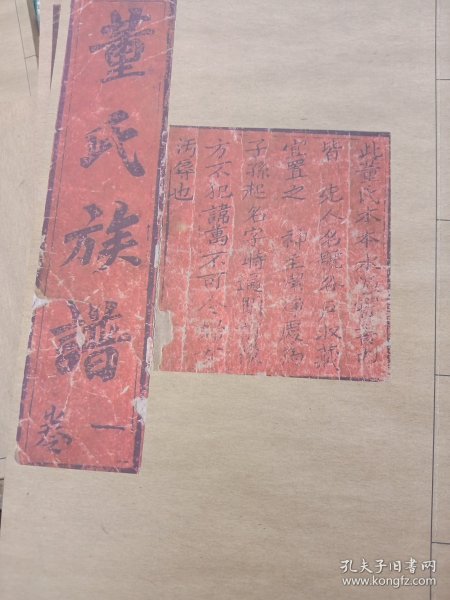 董氏族譜
卷一
此董氏木本水源譜書內
皆先人名號各戶收藏
宜置之神主
子孫起名字時
方不犯諱萬不可令
污辱也
孔夫子旧书网
www.kongfz.com